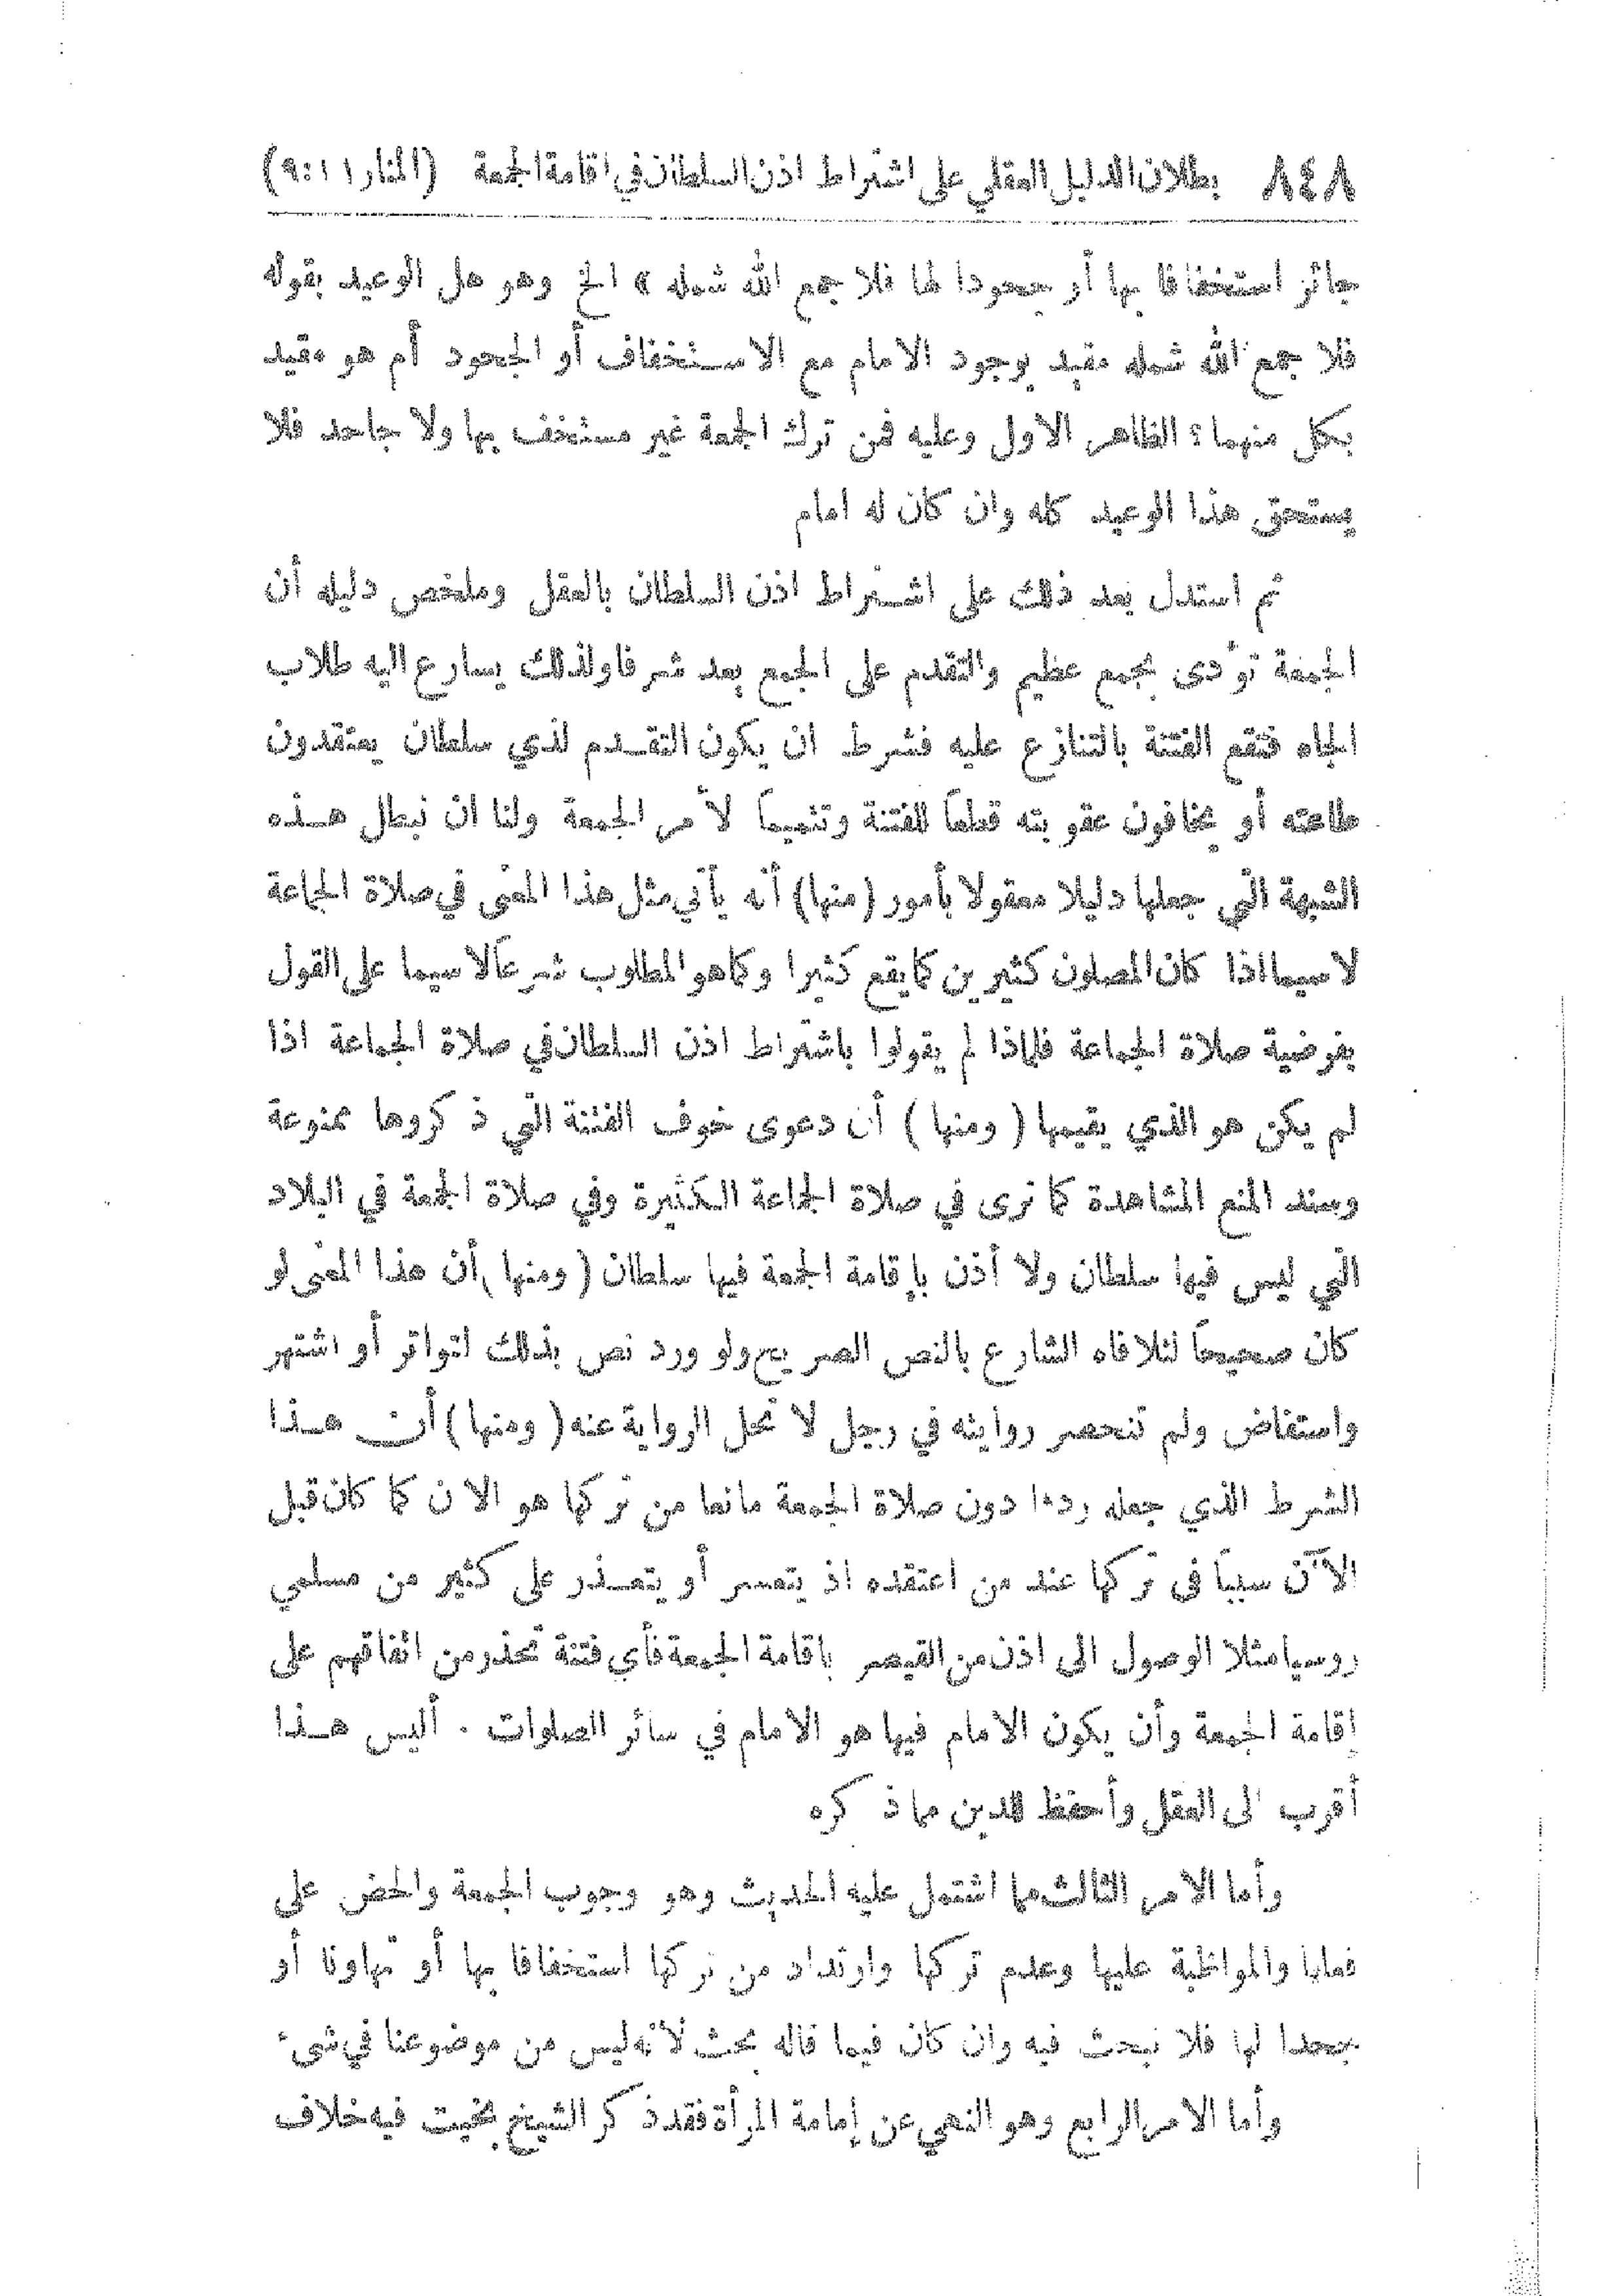 ٨٤٨ بطلان الدليل العقلي على اشتراط اذن السلطان في اقامة الجمعة (المنار ١١:٩)
جائر استخفافا بها أو جحودا لها فلا جمع الله شمله » الخ وهو هل الوعيد بقوله
فلا جمع الله شمله مقيد بوجود الامام مع الاستخفاف أو الجحود أم هو مقيد
بكل منهما؟ الظاهر الاول وعليه فمن ترك الجمعة غير مستخف بها ولا جاحد فلا
يستحق هذا الوعيد كله وان كان له امام
ثم استدل بعد ذلك على اشتراط اذن السلطان بالعقل وملخص دليله أن
الجمعة تؤدى بجمع عظيم والتقدم على الجمع يعد شرفا ولذلك يسارع اليه طلاب
الجاه فتقع الفتنة بالتنازع عليه فشرط ان يكون التقدم لذي سلطان يعتقدون
طاعته أو يخافون عقوبته قطعاً للفتنة وتتميماً لأمر الجمعة ولنا ان نبطل هذه
الشبهة التي جعلها دليلا معقولا بأمور (منها) أنه يأتي مثل هذا المعنى في صلاة الجماعة
لا سيما اذا كان المصلون كثيرين كما يقع كثيرا وكما هو المطلوب شرعاً لا سيما على القول
بفرضية صلاة الجماعة فلماذا لم يقولوا باشتراط اذن السلطان في صلاة الجماعة اذا
لم يكن هو الذي يقيمها (ومنها) أن دعوى خوف الفتنة التي ذكروها ممنوعة
وسند المنع المشاهدة كما نرى في صلاة الجماعة الكثيرة وفي صلاة الجمعة في البلاد
التي ليس فيها سلطان ولا أذن بإقامة الجمعة فيها سلطان (ومنها) أن هذا المعنى لو
كان صحيحاً لتلافاه الشارع بالنص الصريح ولو ورد نص بذلك لتواتر أو اشتهر
واستفاض ولم تنحصر روايته في رجل لا تحل الرواية عنه (ومنها) أن هذا
الشرط الذي جعله ردءا دون صلاة الجمعة مانعا من تركها هو الان كما كان قبل
الآن سبباً في تركها عند من اعتقده اذ يتعسر أو يتعذر على كثير من مسلمي
روسيا مثلا الوصول الى اذن من القيصر باقامة الجمعة فأي فتنة تحذر من اتفاقهم على
إقامة الجمعة وأن يكون الامام فيها هو الامام في سائر الصلوات . أليس هذا
أقرب الى العقل وأحفظ للدين مما ذكره
وأما الامر الثالث مما اشتمل عليه الحديث وهو وجوب الجمعة والحض على
فعلها والمواظبة عليها وعدم تركها وارتداد من تركها استخفافا بها أو تهاونا أو
جحدا لها فلا نبحث فيه وان كان فيما قاله بحث لأنه ليس من موضوعنا في شيء
وأما الامر الرابع وهو النهي عن إمامة المرأة فقد ذكر الشيخ بخيت فيه خلاف